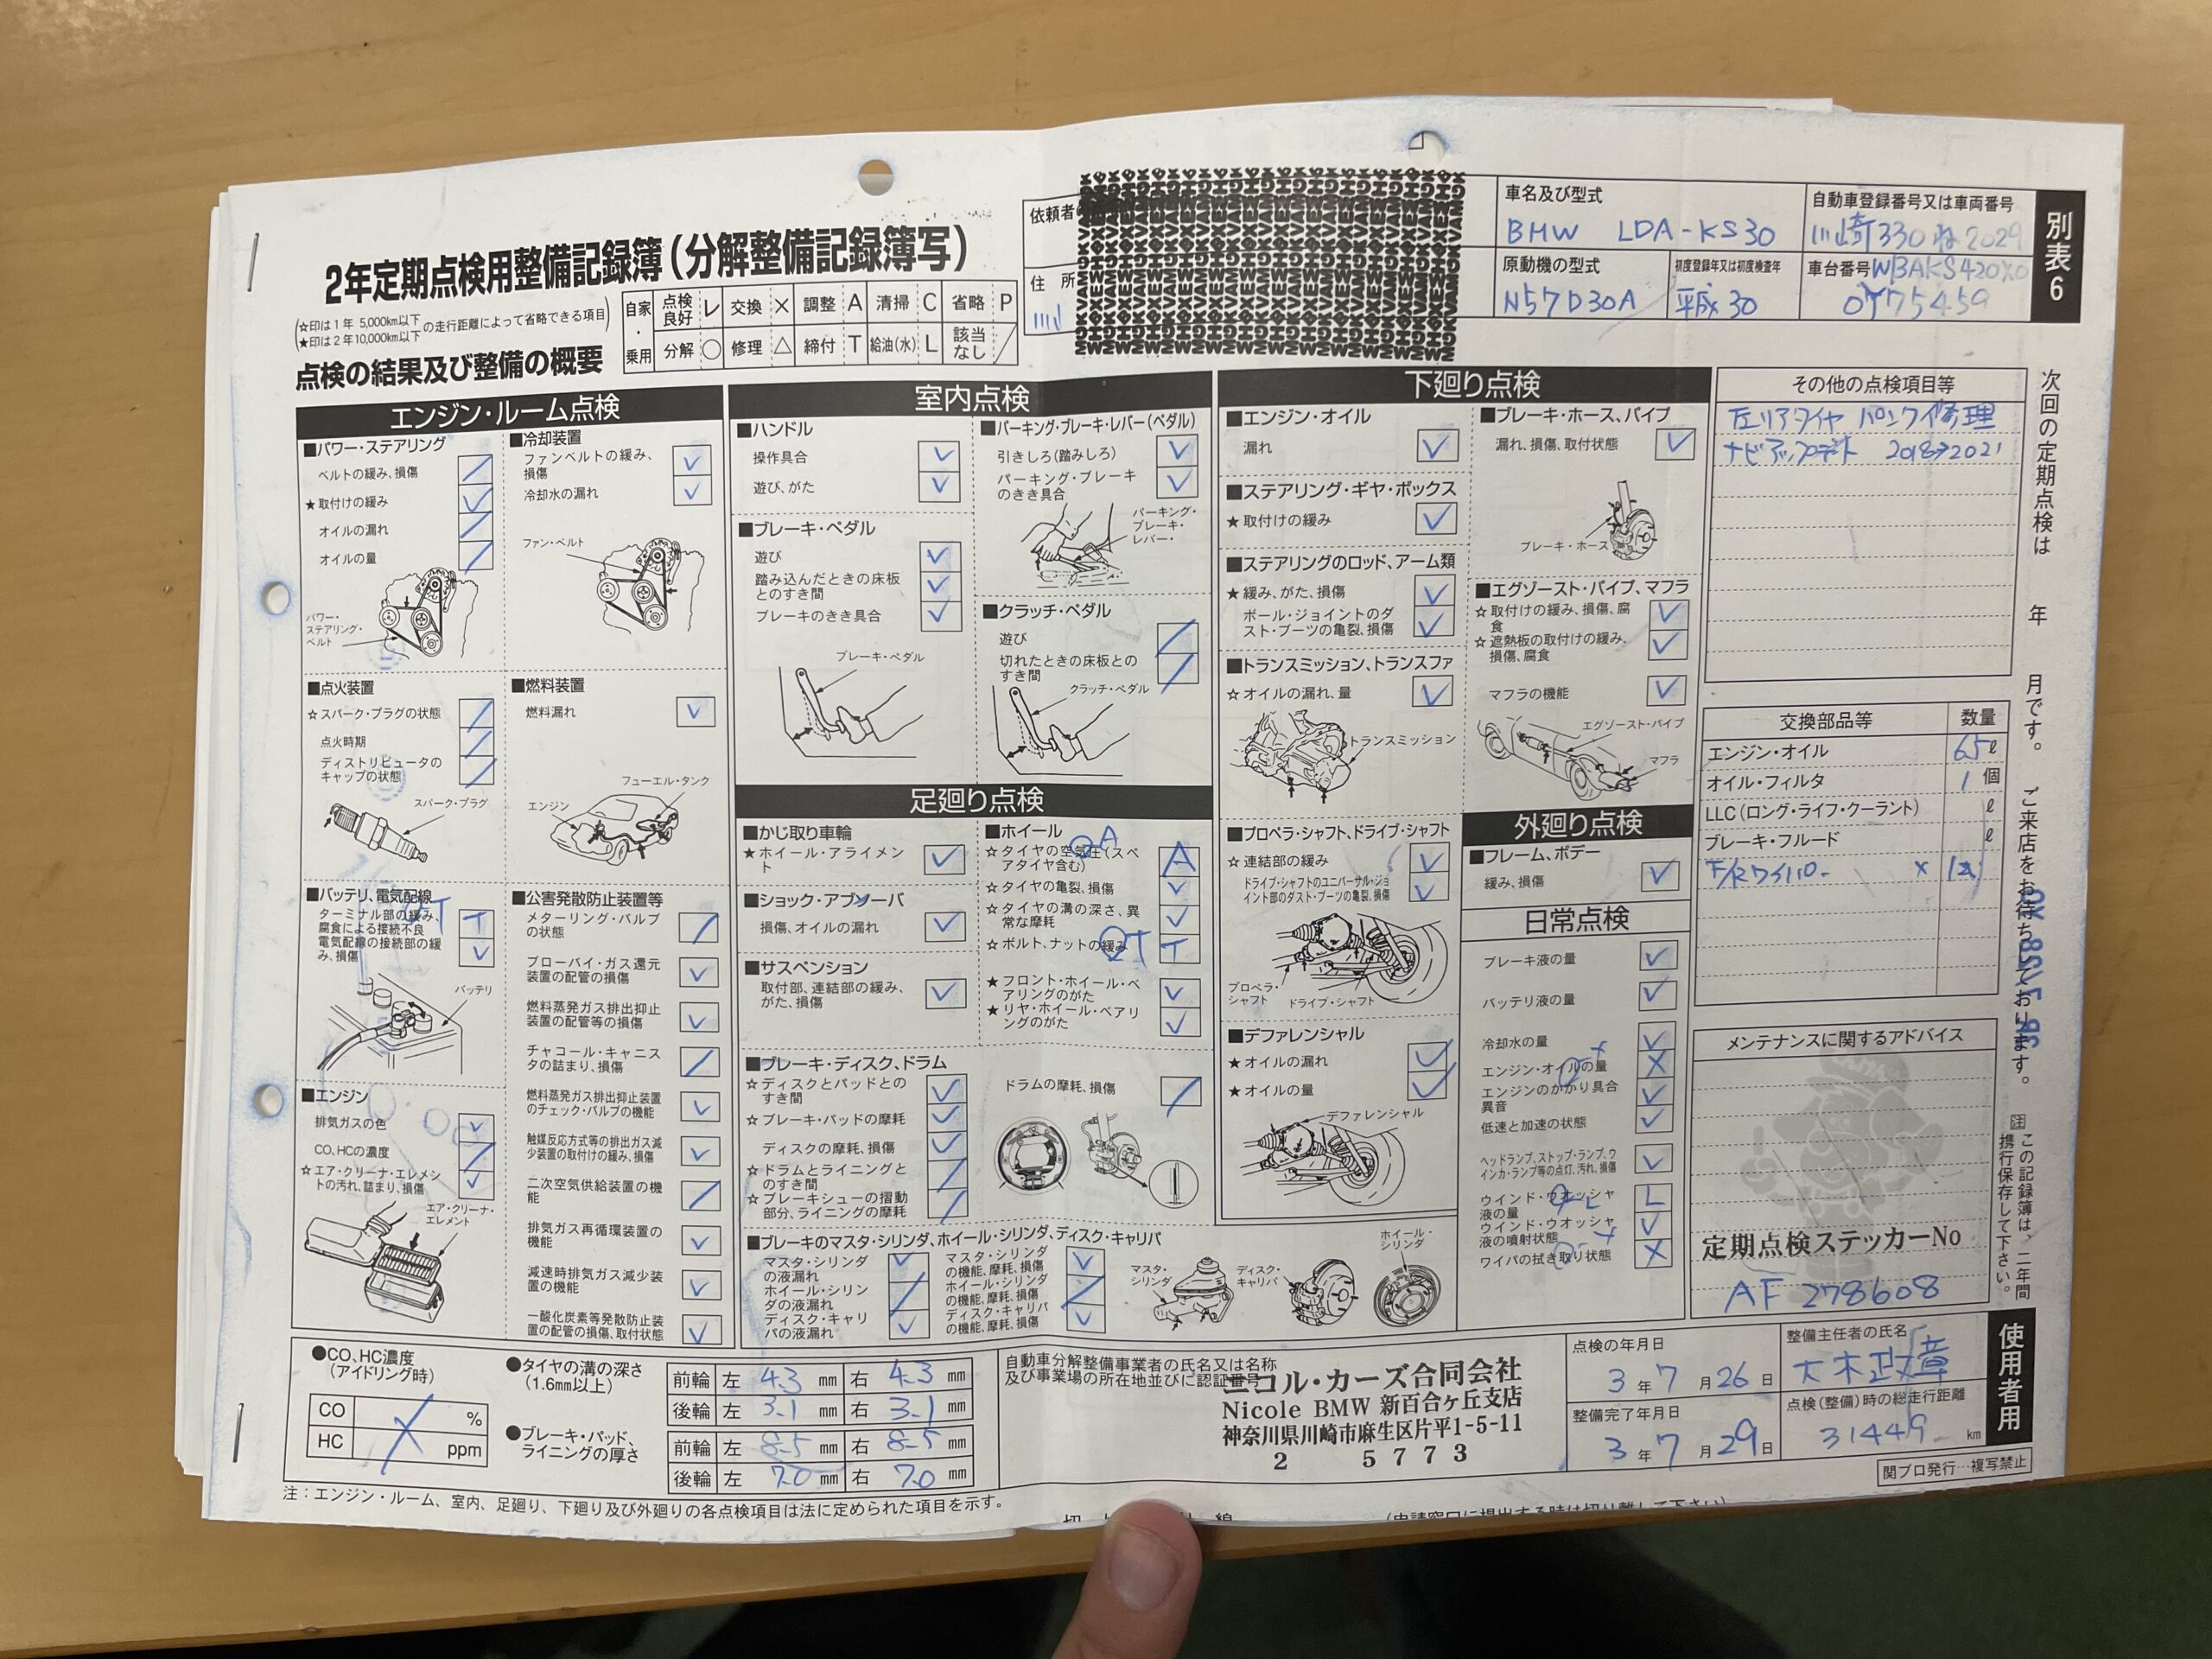 2年定期点検用整備記録簿（分解整備記録簿写）
(☆印は1年 5,000km以下
★印は2年10,000km以下 の走行距離によって省略できる項目)
点検の結果及び整備の概要
自家・乗用
点検良好 レ 交換 × 調整 A 清掃 C 省略 P
分解 ○ 修理 △ 締付 T 給油(水) L 該当なし ／
依頼者
住所
車名及び型式
BMW LDA-KS30
自動車登録番号又は車両番号
川崎330 ね 2029
原動機の型式
N57D30A
初度登録年又は初度検査年
平成30
車台番号
別表6
エンジン・ルーム点検
■パワー・ステアリング
ベルトの緩み、損傷 ／
★取付けの緩み レ
オイルの漏れ ／
オイルの量 ／
パワー・ステアリング・ベルト
■冷却装置
ファンベルトの緩み、損傷 レ
冷却水の漏れ レ
ファン・ベルト
■点火装置
☆スパーク・プラグの状態 ／
点火時期 ／
ディストリビュータのキャップの状態 ／
スパーク・プラグ
■燃料装置
燃料漏れ レ
フューエル・タンク
エンジン
■バッテリ、電気配線
ターミナル部の緩み、腐食による接続不良 T
電気配線の接続部の緩み、損傷 レ
バッテリ
■エンジン
排気ガスの色 レ
CO、HCの濃度 ／
☆エア・クリーナ・エレメントの汚れ、詰まり、損傷 レ
エア・クリーナ・エレメント
■公害発散防止装置等
メターリング・バルブの状態 ／
ブローバイ・ガス還元装置の配管の損傷 レ
燃料蒸発ガス排出抑止装置の配管等の損傷 レ
チャコール・キャニスタの詰まり、損傷 ／
燃料蒸発ガス排出抑止装置のチェック・バルブの機能 レ
触媒反応方式等の排出ガス減少装置の取付けの緩み、損傷 レ
二次空気供給装置の機能 ／
排気ガス再循環装置の機能 レ
減速時排気ガス減少装置の機能 レ
一酸化炭素等発散防止装置の配管の損傷、取付状態 レ
室内点検
■ハンドル
操作具合 レ
遊び、がた レ
■ブレーキ・ペダル
遊び レ
踏み込んだときの床板とのすき間 レ
ブレーキのきき具合 レ
ブレーキ・ペダル
■パーキング・ブレーキ・レバー（ペダル）
引きしろ（踏みしろ） レ
パーキング・ブレーキのきき具合 レ
パーキング・ブレーキ・レバー・
■クラッチ・ペダル
遊び ／
切れたときの床板とのすき間 ／
クラッチ・ペダル
足廻り点検
■かじ取り車輪
★ホイール・アライメント レ
■ショック・アブソーバ
損傷、オイルの漏れ レ
■サスペンション
取付部、連結部の緩み、がた、損傷 レ
■ホイール
☆タイヤの空気圧（スペアタイヤ含む） A
☆タイヤの亀裂、損傷 レ
☆タイヤの溝の深さ、異常な摩耗 レ
☆ボルト、ナットの緩み T
★フロント・ホイール・ベアリングのがた レ
★リヤ・ホイール・ベアリングのがた レ
■ブレーキ・ディスク、ドラム
☆ディスクとパッドとのすき間 レ
☆ブレーキ・パッドの摩耗 レ
ディスクの摩耗、損傷 レ
☆ドラムとライニングとのすき間 ／
☆ブレーキシューの摺動部分、ライニングの摩耗 ／
ドラムの摩耗、損傷 ／
■ブレーキのマスタ・シリンダ、ホイール・シリンダ、ディスク・キャリパ
マスタ・シリンダの液漏れ レ
ホイール・シリンダの液漏れ ／
ディスク・キャリパの液漏れ レ
マスタ・シリンダの機能、摩耗、損傷 レ
ホイール・シリンダの機能、摩耗、損傷 ／
ディスク・キャリパの機能、摩耗、損傷 レ
マスタ・シリンダ
ディスク・キャリパ
ホイール・シリンダ
下廻り点検
■エンジン・オイル
漏れ レ
■ステアリング・ギヤ・ボックス
★取付けの緩み レ
■ステアリングのロッド、アーム類
★緩み、がた、損傷 レ
ボール・ジョイントのダスト・ブーツの亀裂、損傷 レ
■トランスミッション、トランスファ
☆オイルの漏れ、量 レ
トランスミッション
■プロペラ・シャフト、ドライブ・シャフト
☆連結部の緩み レ
ドライブ・シャフトのユニバーサル・ジョイント部のダスト・ブーツの亀裂、損傷 レ
プロペラ・シャフト
ドライブ・シャフト
■デファレンシャル
★オイルの漏れ レ
★オイルの量 レ
デファレンシャル
■ブレーキ・ホース、パイプ
漏れ、損傷、取付状態 レ
ブレーキ・ホース
■エグゾースト・パイプ、マフラ
☆取付けの緩み、損傷、腐食 レ
☆遮熱板の取付けの緩み、損傷、腐食 レ
マフラの機能 レ
エグゾースト・パイプ
マフラ
外廻り点検
■フレーム、ボデー
緩み、損傷 レ
日常点検
ブレーキ液の量 レ
バッテリ液の量 レ
冷却水の量 レ
エンジン・オイルの量 ×
エンジンのかかり具合異音 レ
低速と加速の状態 レ
ヘッドランプ、ストップ・ランプ、ウインカ・ランプ等の点灯、汚れ、損傷 レ
ウインド・ウオッシャ液の量 L
ウインド・ウオッシャ液の噴射状態 レ
ワイパの拭き取り状態 ×
その他の点検項目等
左リアタイヤ パンク修理
ナビアップデート 2018→2021
交換部品等 数量
エンジン・オイル 6.5 ℓ
オイル・フィルタ 1 個
LLC（ロング・ライフ・クーラント） ℓ
ブレーキ・フルード ℓ
F/Rワイパー
メンテナンスに関するアドバイス
定期点検ステッカーNo
AF 278608
次回の定期点検は 年 月です。 ご来店をお待ちしております。
注 この記録簿は、二年間携行保存して下さい。
●CO、HC濃度（アイドリング時）
CO %
HC ppm
●タイヤの溝の深さ（1.6mm以上）
前輪 左 4.3 mm 右 4.3 mm
後輪 左 3.1 mm 右 3.1 mm
●ブレーキ・パッド、ライニングの厚さ
前輪 左 8.5 mm 右 8.5 mm
後輪 左 7.0 mm 右 7.0 mm
自動車分解整備事業者の氏名又は名称及び事業場の所在地並びに認証番号
ニコル・カーズ合同会社
Nicole BMW 新百合ヶ丘支店
神奈川県川崎市麻生区片平1-5-11
2 5773
点検の年月日
3年7月26日
整備完了年月日
3年7月29日
整備主任者の氏名
点検（整備）時の総走行距離
31449 km
使用者用
関プロ発行…複写禁止
注：エンジン・ルーム、室内、足廻り、下廻り及び外廻りの各点検項目は法に定められた項目を示す。